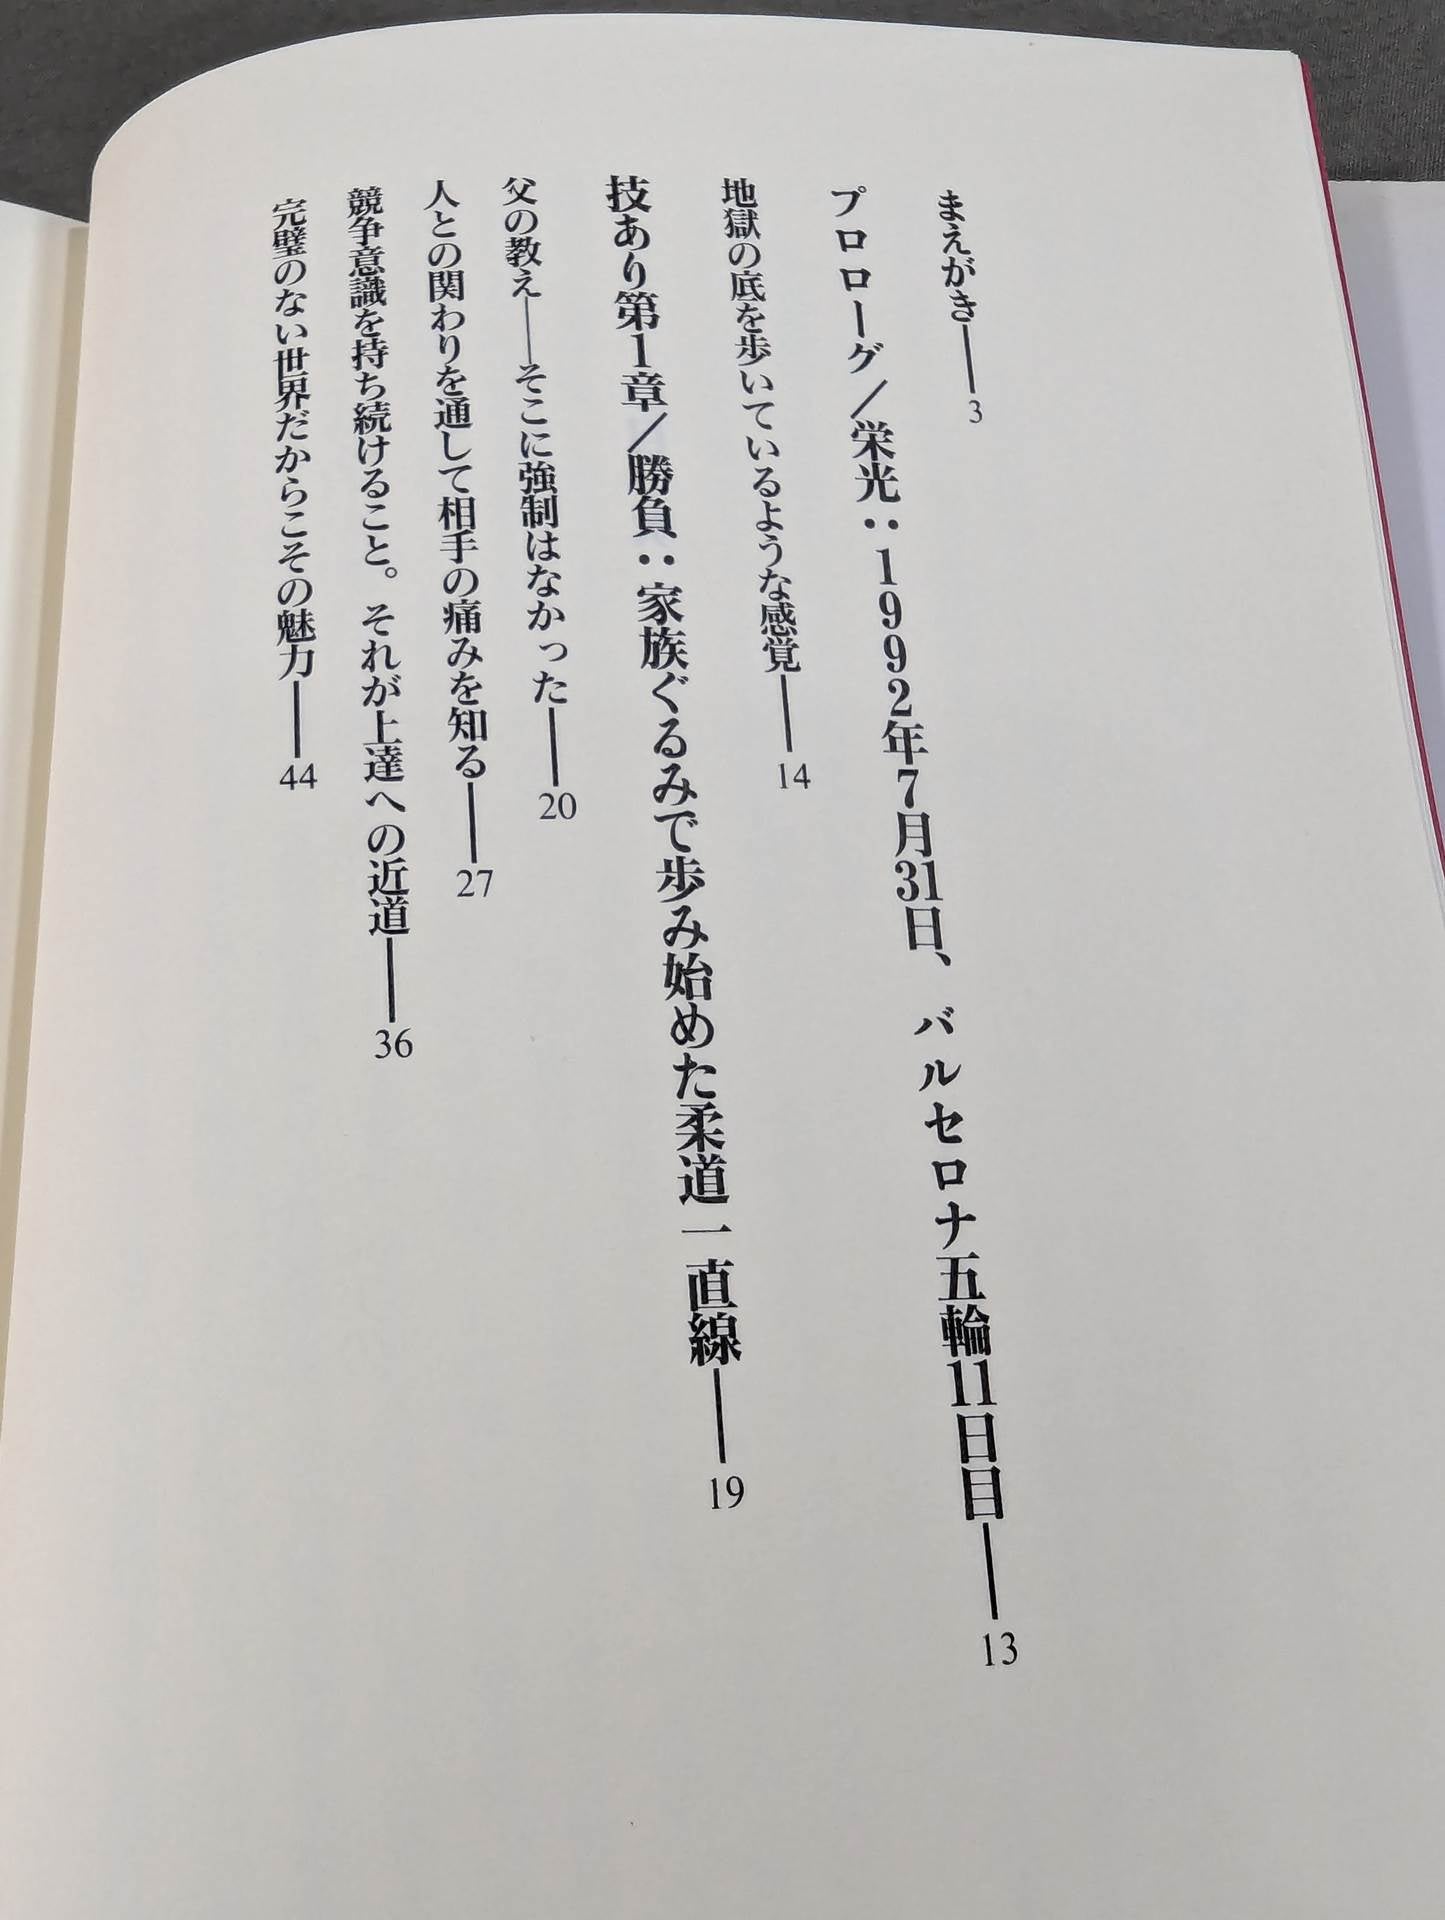 まえがき――3
プロローグ／栄光：1992年7月31日、バルセロナ五輪11日目――13
地獄の底を歩いているような感覚――14
技あり第1章／勝負：家族ぐるみで歩み始めた柔道一直線――19
父の教え――そこに強制はなかった――20
人との関わりを通して相手の痛みを知る――27
競争意識を持ち続けること。それが上達への近道――36
完璧のない世界だからこその魅力――44